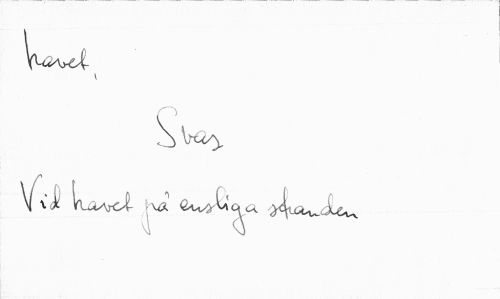 havet,
Svar
Vid havet på ensliga stranden